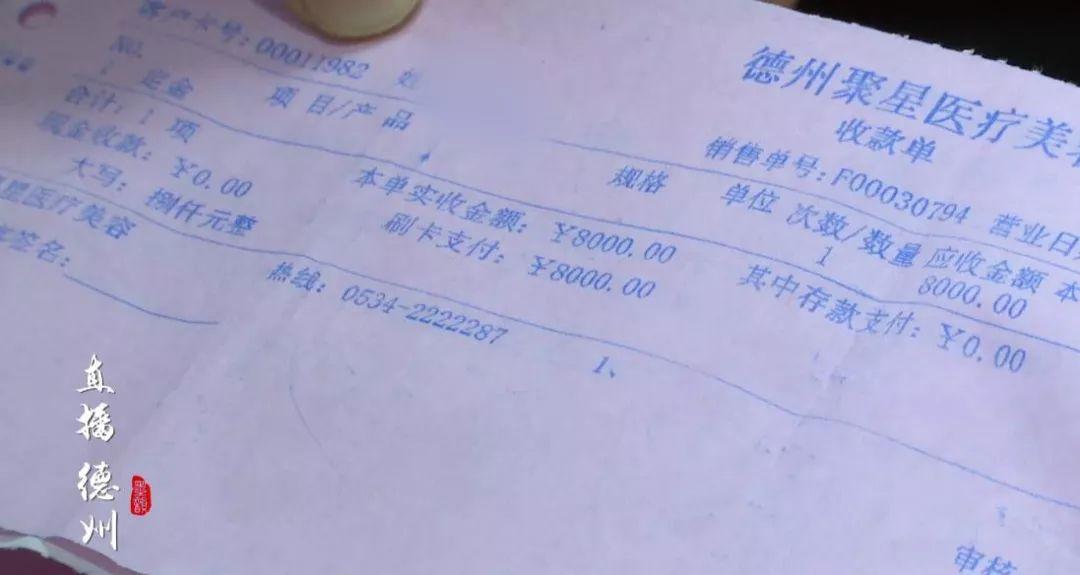 德州聚星医疗美
收款单
客户卡号：00011982 姓
销售单号：F00030794 营业日
NO. 项目/产品 规格 单位 次数/数量 应收金额 本
1 定金 1 8000.00
合计：1 项 本单实收金额：￥8000.00 其中存款支付：￥0.00
现金收款：￥0.00 刷卡支付：￥8000.00
大写：捌仟元整
星医疗美容 热线：0534-2222287 1、
签名：
审核
直播德州